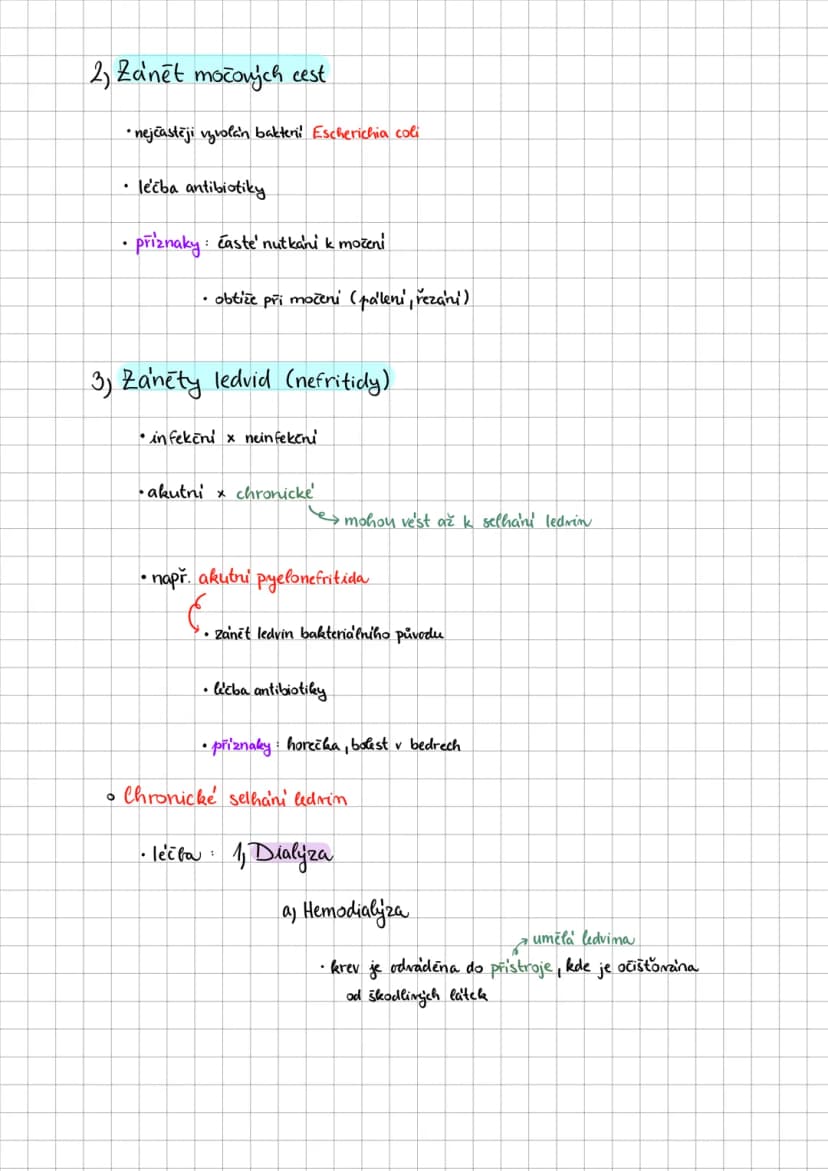 2) Zánět močových cest
• nejčastěji vyvolán bakterií Escherichia coli
• léčba antibiotiky
• příznaky : časté nutkání k močení
• obtíže při močení (pálení, řezání)
3) Záněty ledvid (nefritidy)
• infekční x neinfekční
• akutní x chronické
mohou vést až k selhání ledvin
• např. akutní pyelonefritida
• zánět ledvin bakteriálního původu
• léčba antibiotiky
• příznaky : horečka, bolest v bedrech
o Chronické selhání ledvin
• léčba : 1) Dialýza
a) Hemodialýza
umělá ledvina
• krev je odváděna do přístroje, kde je očišťována
od škodlivých látek